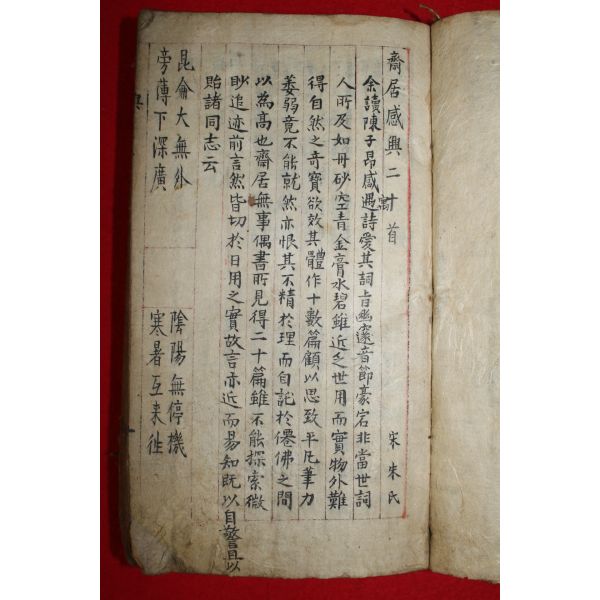 齋居感興二十首 宋朱氏
余讀陳子昂感遇詩愛其詞旨幽邃音節豪宕非當世詞
人所及如丹砂空青金膏水碧雖近乏世用而實物外難
得自然之奇寶欲效其體作十數篇顧以思致平凡筆力
萎弱竟不能就然亦恨其不精於理而自託於僊佛之間
以為高也齋居無事偶書所見得二十篇雖不能探索微
眇追迹前言然皆切於日用之實故言亦近而易知既以自警且以
貽諸同志云
昆侖大無外
旁薄下深廣
陰陽無停機
寒暑互來徃